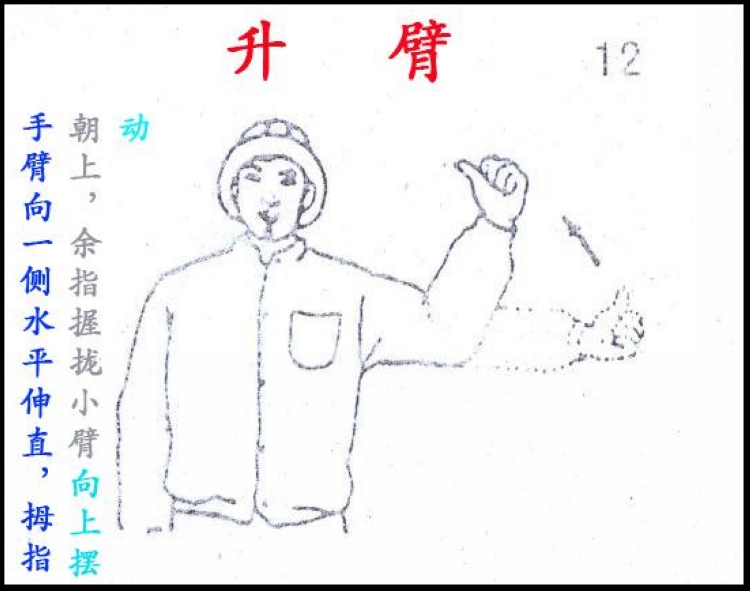 升 臂
12
手臂向一侧水平伸直，拇指
朝上，余指握拢小臂向上摆
动